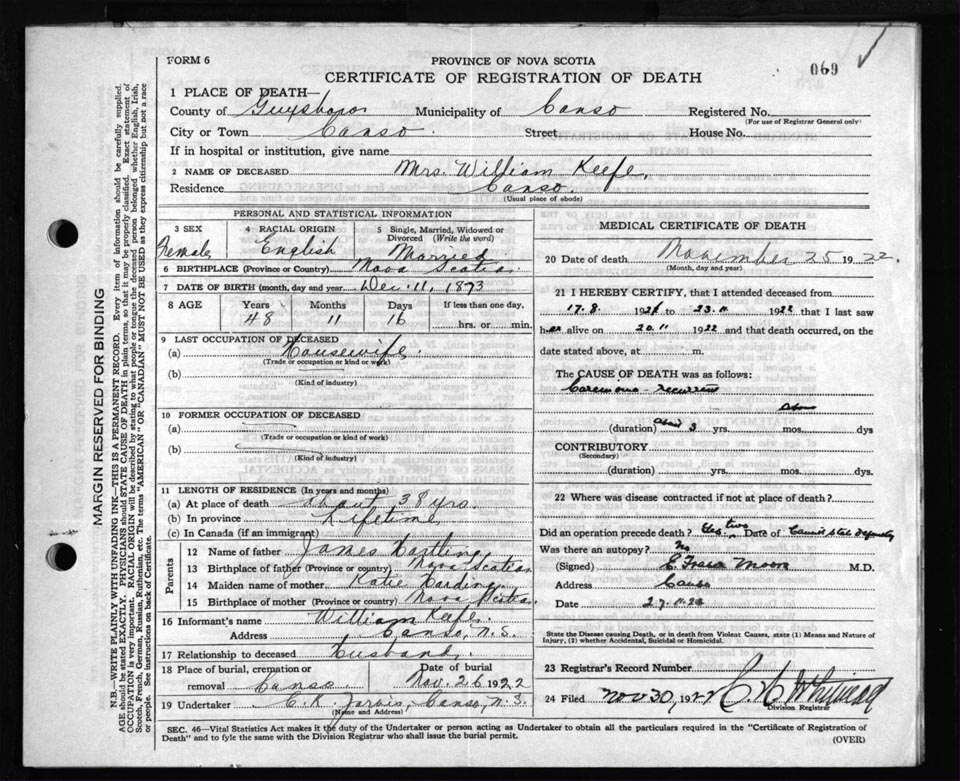 N.B.—WRITE PLAINLY WITH UNFADING INK—THIS IS A PERMANENT RECORD. Every item of information should be carefully supplied.
AGE should be stated EXACTLY. PHYSICIANS should STATE CAUSE OF DEATH in plain terms, so that it may be properly classified. Exact statement of
OCCUPATION is very important. RACIAL ORIGIN will be described by stating to what people or tongue the deceased person belonged whether English, Irish,
Scotch, French, German, Russian, Ruthenian, etc. The terms "AMERICAN" OR "CANADIAN" MUST NOT BE USED as they express citizenship but not a race
or people. See instructions on back of Certificate.
MARGIN RESERVED FOR BINDING
FORM 6
PROVINCE OF NOVA SCOTIA
CERTIFICATE OF REGISTRATION OF DEATH
069
1 PLACE OF DEATH—
County of Guysboro Municipality of Canso Registered No.
(For use of Registrar General only)
City or Town Canso. Street House No.
If in hospital or institution, give name
2 NAME OF DECEASED Mrs. William Keefe,
Residence Canso.
(Usual place of abode)
PERSONAL AND STATISTICAL INFORMATION
3 SEX Female
4 RACIAL ORIGIN English
5 Single, Married, Widowed or Divorced (Write the word) Married
6 BIRTHPLACE (Province or Country) Nova Scotia
7 DATE OF BIRTH (month, day and year) Dec. 11, 1873
8 AGE Years Months Days If less than one day,
48 11 16 hrs. or min.
9 LAST OCCUPATION OF DECEASED
(a) Housewife.
(Trade or occupation or kind of work)
(b)
(Kind of industry)
10 FORMER OCCUPATION OF DECEASED
(a)
(Trade or occupation or kind of work)
(b)
(Kind of industry)
11 LENGTH OF RESIDENCE (In years and months)
(a) At place of death about 38 yrs.
(b) In province Lifetime
(c) In Canada (if an immigrant)
Parents
12 Name of father James Hartling
13 Birthplace of father (Province or country) Nova Scotia
14 Maiden name of mother Katie Harding
15 Birthplace of mother (Province or country) Nova Scotia.
16 Informant's name William Keefe
Address Canso, N.S.
17 Relationship to deceased Husband.
18 Place of burial, cremation or removal Canso
Date of burial Nov. 26 1922
19 Undertaker C.K. Jarvis, Canso, N.S.
(Name and Address)
MEDICAL CERTIFICATE OF DEATH
20 Date of death November 25 1922.
(Month, day and year)
21 I HEREBY CERTIFY, that I attended deceased from
17.8. 192 to 23.11. 1922 that I last saw
her alive on 20.11 1922 and that death occurred, on the
date stated above, at m.
The CAUSE OF DEATH was as follows:
recurrent
(duration) about 3 yrs. mos. dys
CONTRIBUTORY
(Secondary)
(duration) yrs. mos. dys.
22 Where was disease contracted if not at place of death?
Did an operation precede death? Yes, two Date of Cannot state
Was there an autopsy? No
(Signed) Moore M.D.
Address Canso
Date 27.11.22
State the Disease causing Death, or in death from Violent Causes, state (1) Means and Nature of
Injury, (2) whether Accidental, Suicidal or Homicidal.
23 Registrar's Record Number
24 Filed Nov 30, 1922
Division Registrar
SEC. 46—Vital Statistics Act makes it the duty of the Undertaker or person acting as Undertaker to obtain all the particulars required in the "Certificate of Registration of
Death" and to fyle the same with the Division Registrar who shall issue the burial permit.
(OVER)